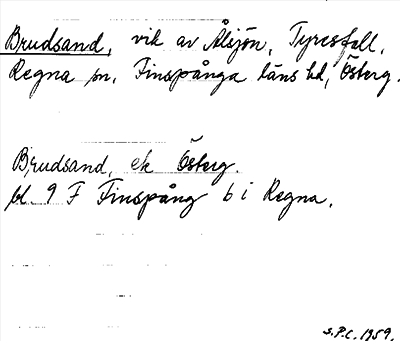 Brudsand, vik av Ålsjön, Tyresfall,
Regna sn, Finspånga läns hd, Österg.
Brudsand, ek Österg.
bl. 9 F Finspång b i Regna.
S.P.C. 1959.